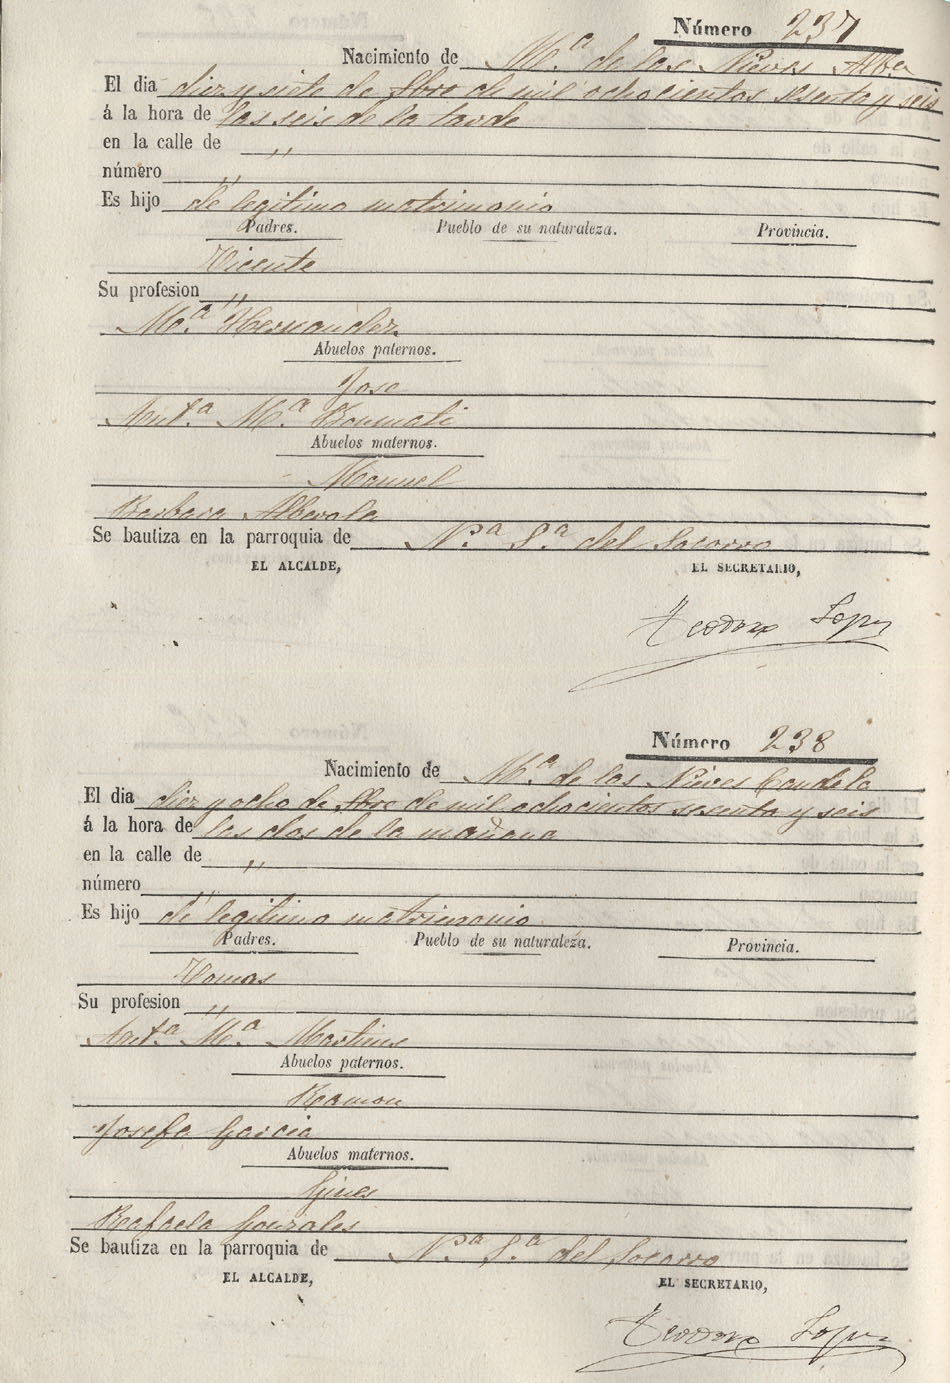 Número 237
Nacimiento de Mª de los Nieves Alber
El dia diez y siete de Sbre de mil ochocientos sesenta y seis
á la hora de las seis de la tarde
en la calle de "
número "
Es hijo de legitimo matrimonio
Padres. Pueblo de su naturaleza. Provincia.
Vicente
Su profesion "
Mª Hernandez
Abuelos paternos.
Jose
Antª Mª
Abuelos maternos.
Manuel
Barbara Alberola
Se bautiza en la parroquia de Nª Sª del Socorro
EL ALCALDE, EL SECRETARIO,
Teodoro Lopez
Número 238
Nacimiento de Mª de los Nieves Candela
El dia diez y ocho de Sbre de mil ochocientos sesenta y seis
á la hora de las dos de la mañana
en la calle de "
número "
Es hijo de legitimo matrimonio
Padres. Pueblo de su naturaleza. Provincia.
Tomas
Su profesion "
Antª Mª Martinez
Abuelos paternos.
Ramon
Josefa Garcia
Abuelos maternos.
Gines
Rafaela Gonzales
Se bautiza en la parroquia de Nª Sª del Socorro
EL ALCALDE, EL SECRETARIO,
Teodoro Lopez